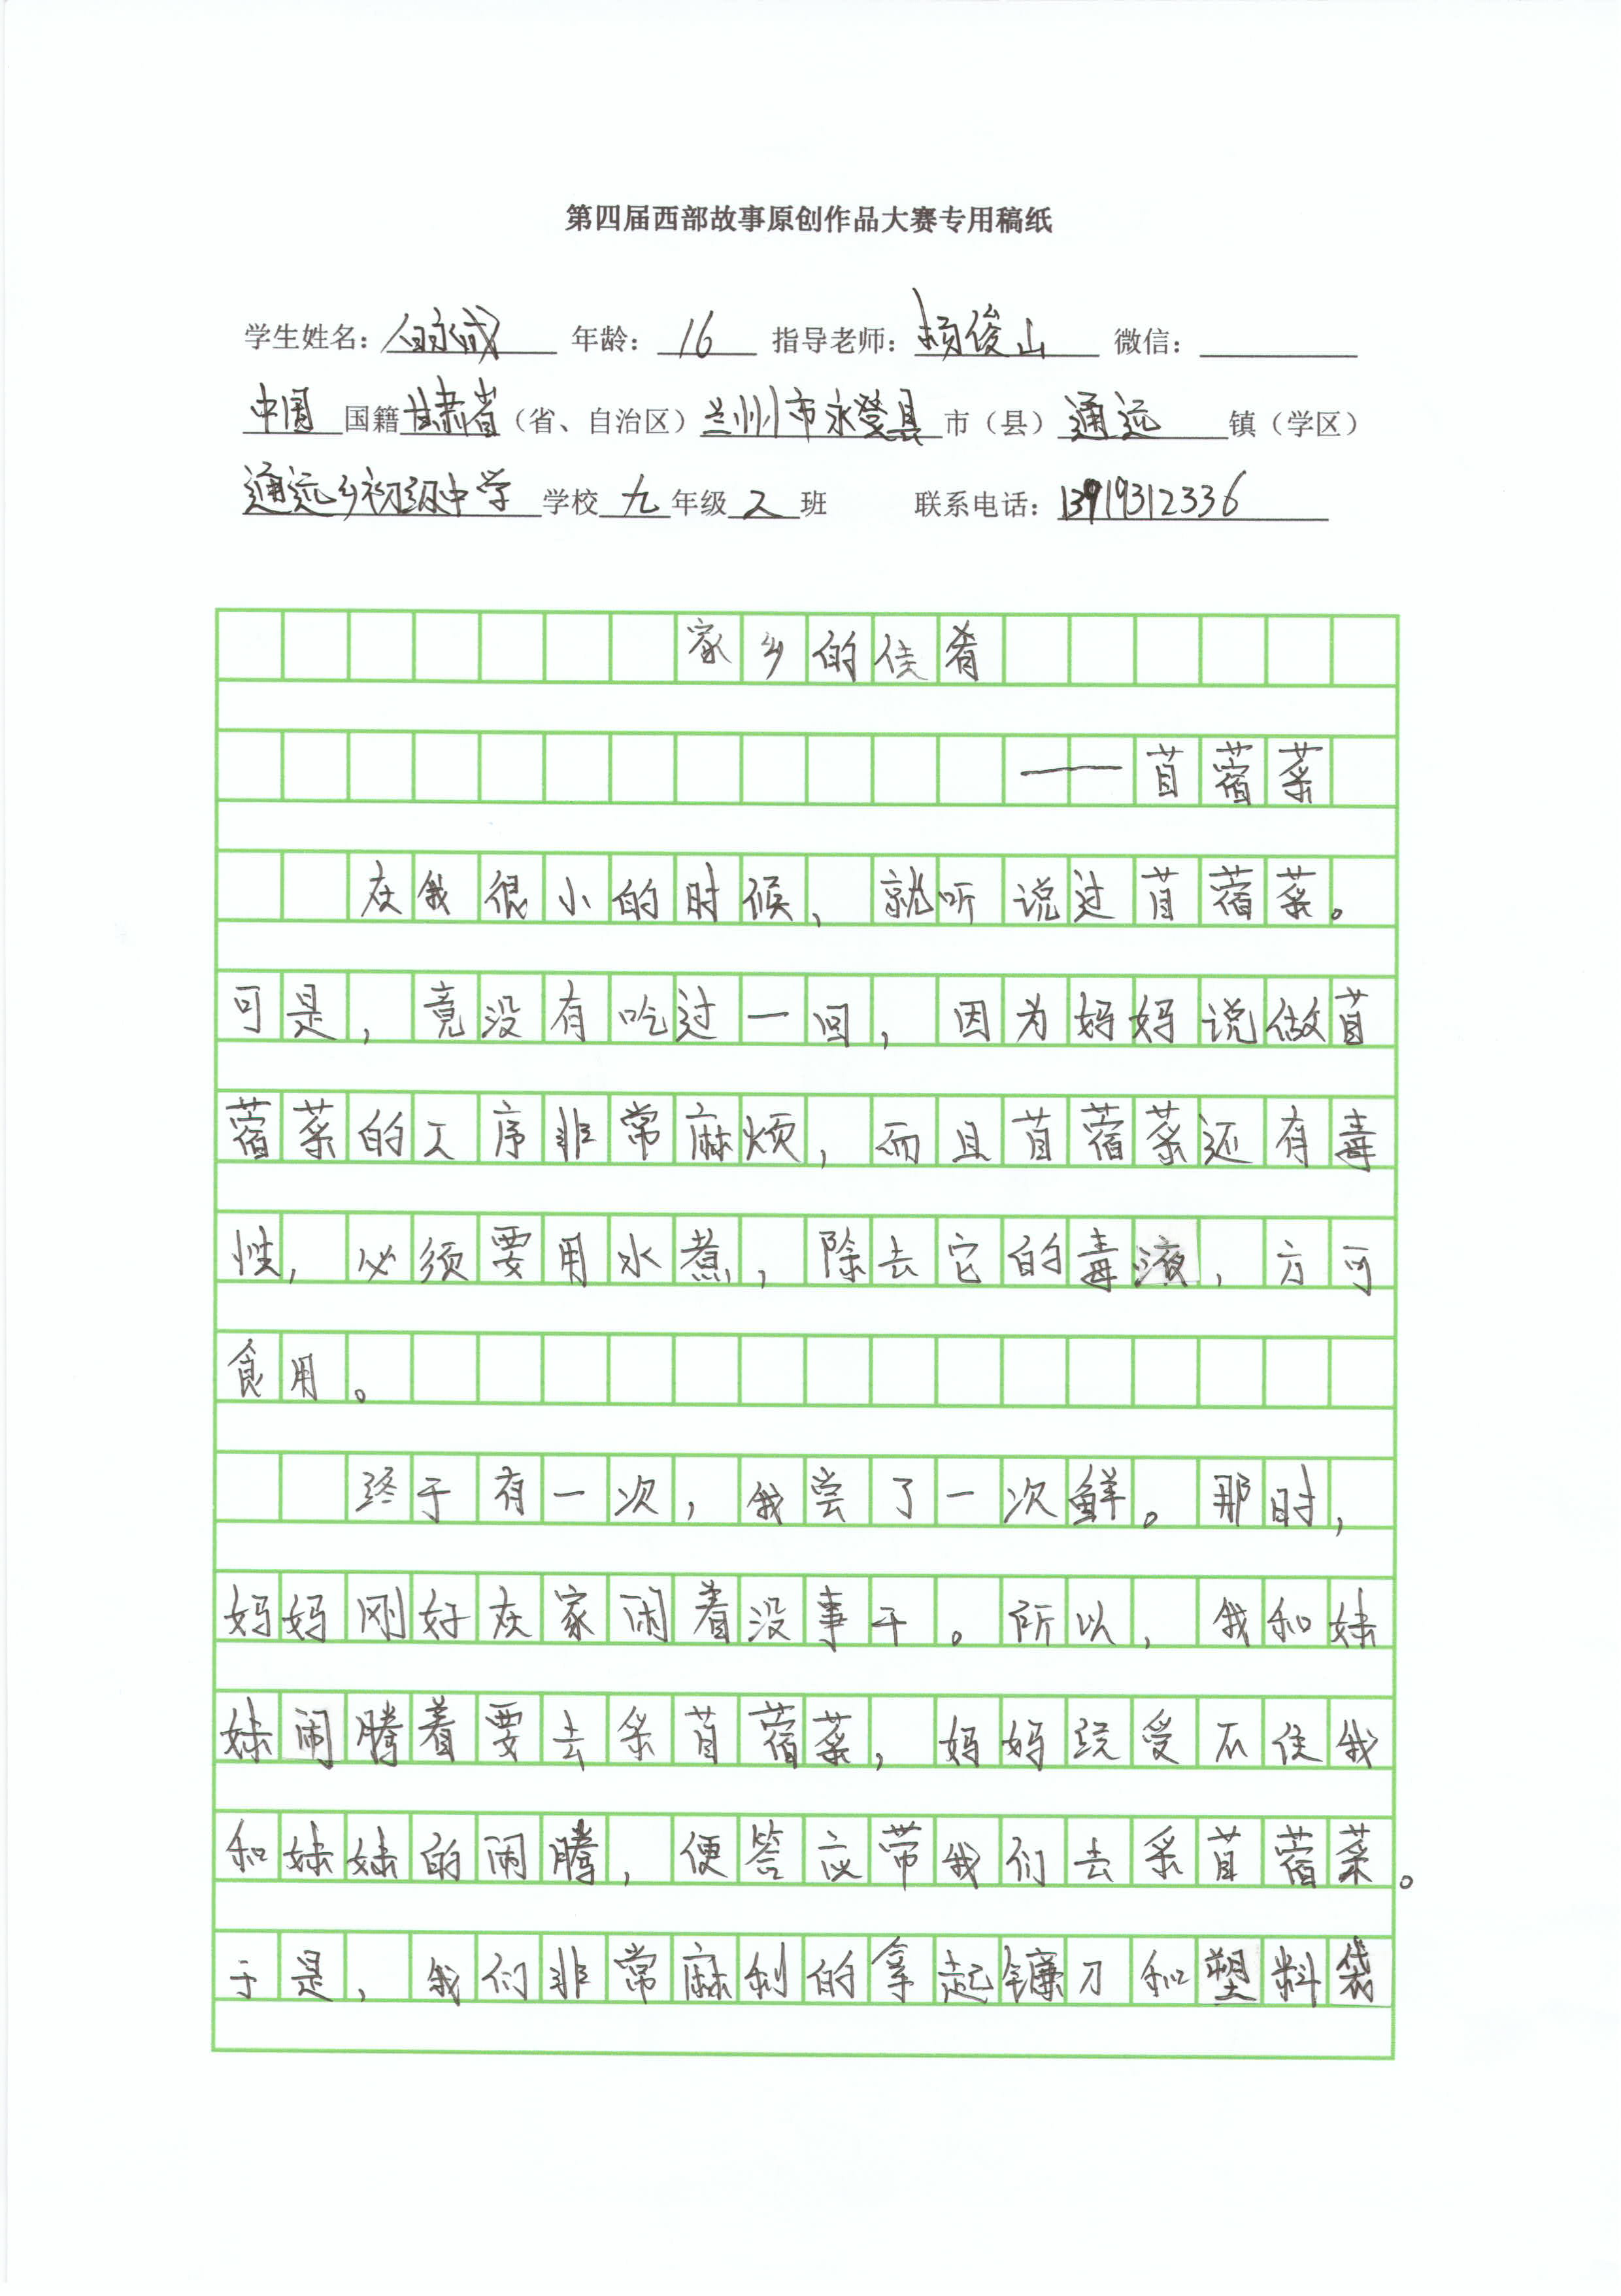 第四届西部故事原创作品大赛专用稿纸
学生姓名： 年龄：16 指导老师：杨俊山 微信：
中国国籍甘肃省（省、自治区）兰州市永登县市（县）通远镇（学区）
通远乡初级中学学校九年级2班 联系电话：13919312336
家乡的佳肴
——苜蓿菜
在我很小的时候，就听说过苜蓿菜。
可是，竟没有吃过一回，因为妈妈说做苜
蓿菜的工序非常麻烦，而且苜蓿菜还有毒
性，必须要用水煮，除去它的毒液，方可
食用。
终于有一次，我尝了一次鲜。那时，
妈妈刚好在家闲着没事干。所以，我和妹
妹闹腾着要去采苜蓿菜，妈妈经受不住我
和妹妹的闹腾，便答应带我们去采苜蓿菜。
于是，我们非常麻利的拿起镰刀和塑料袋